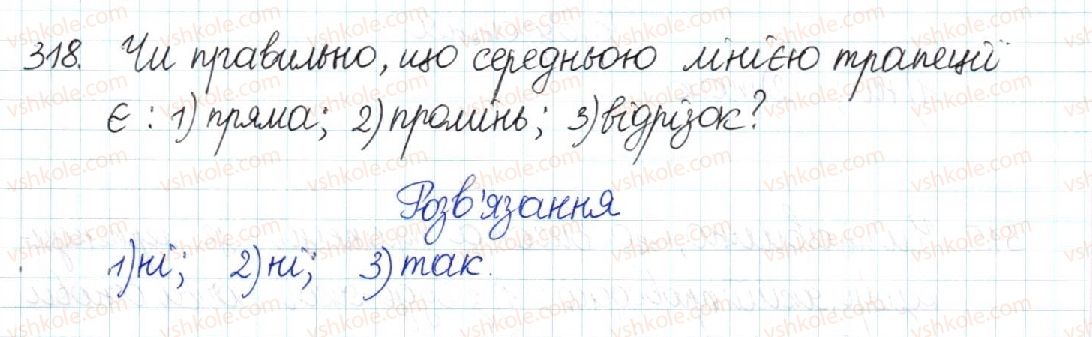 318. Чи правильно, що середньою лінією трапеції
є: 1) пряма; 2) промінь; 3) відрізок?
Розв'язання
1) ні; 2) ні; 3) так.